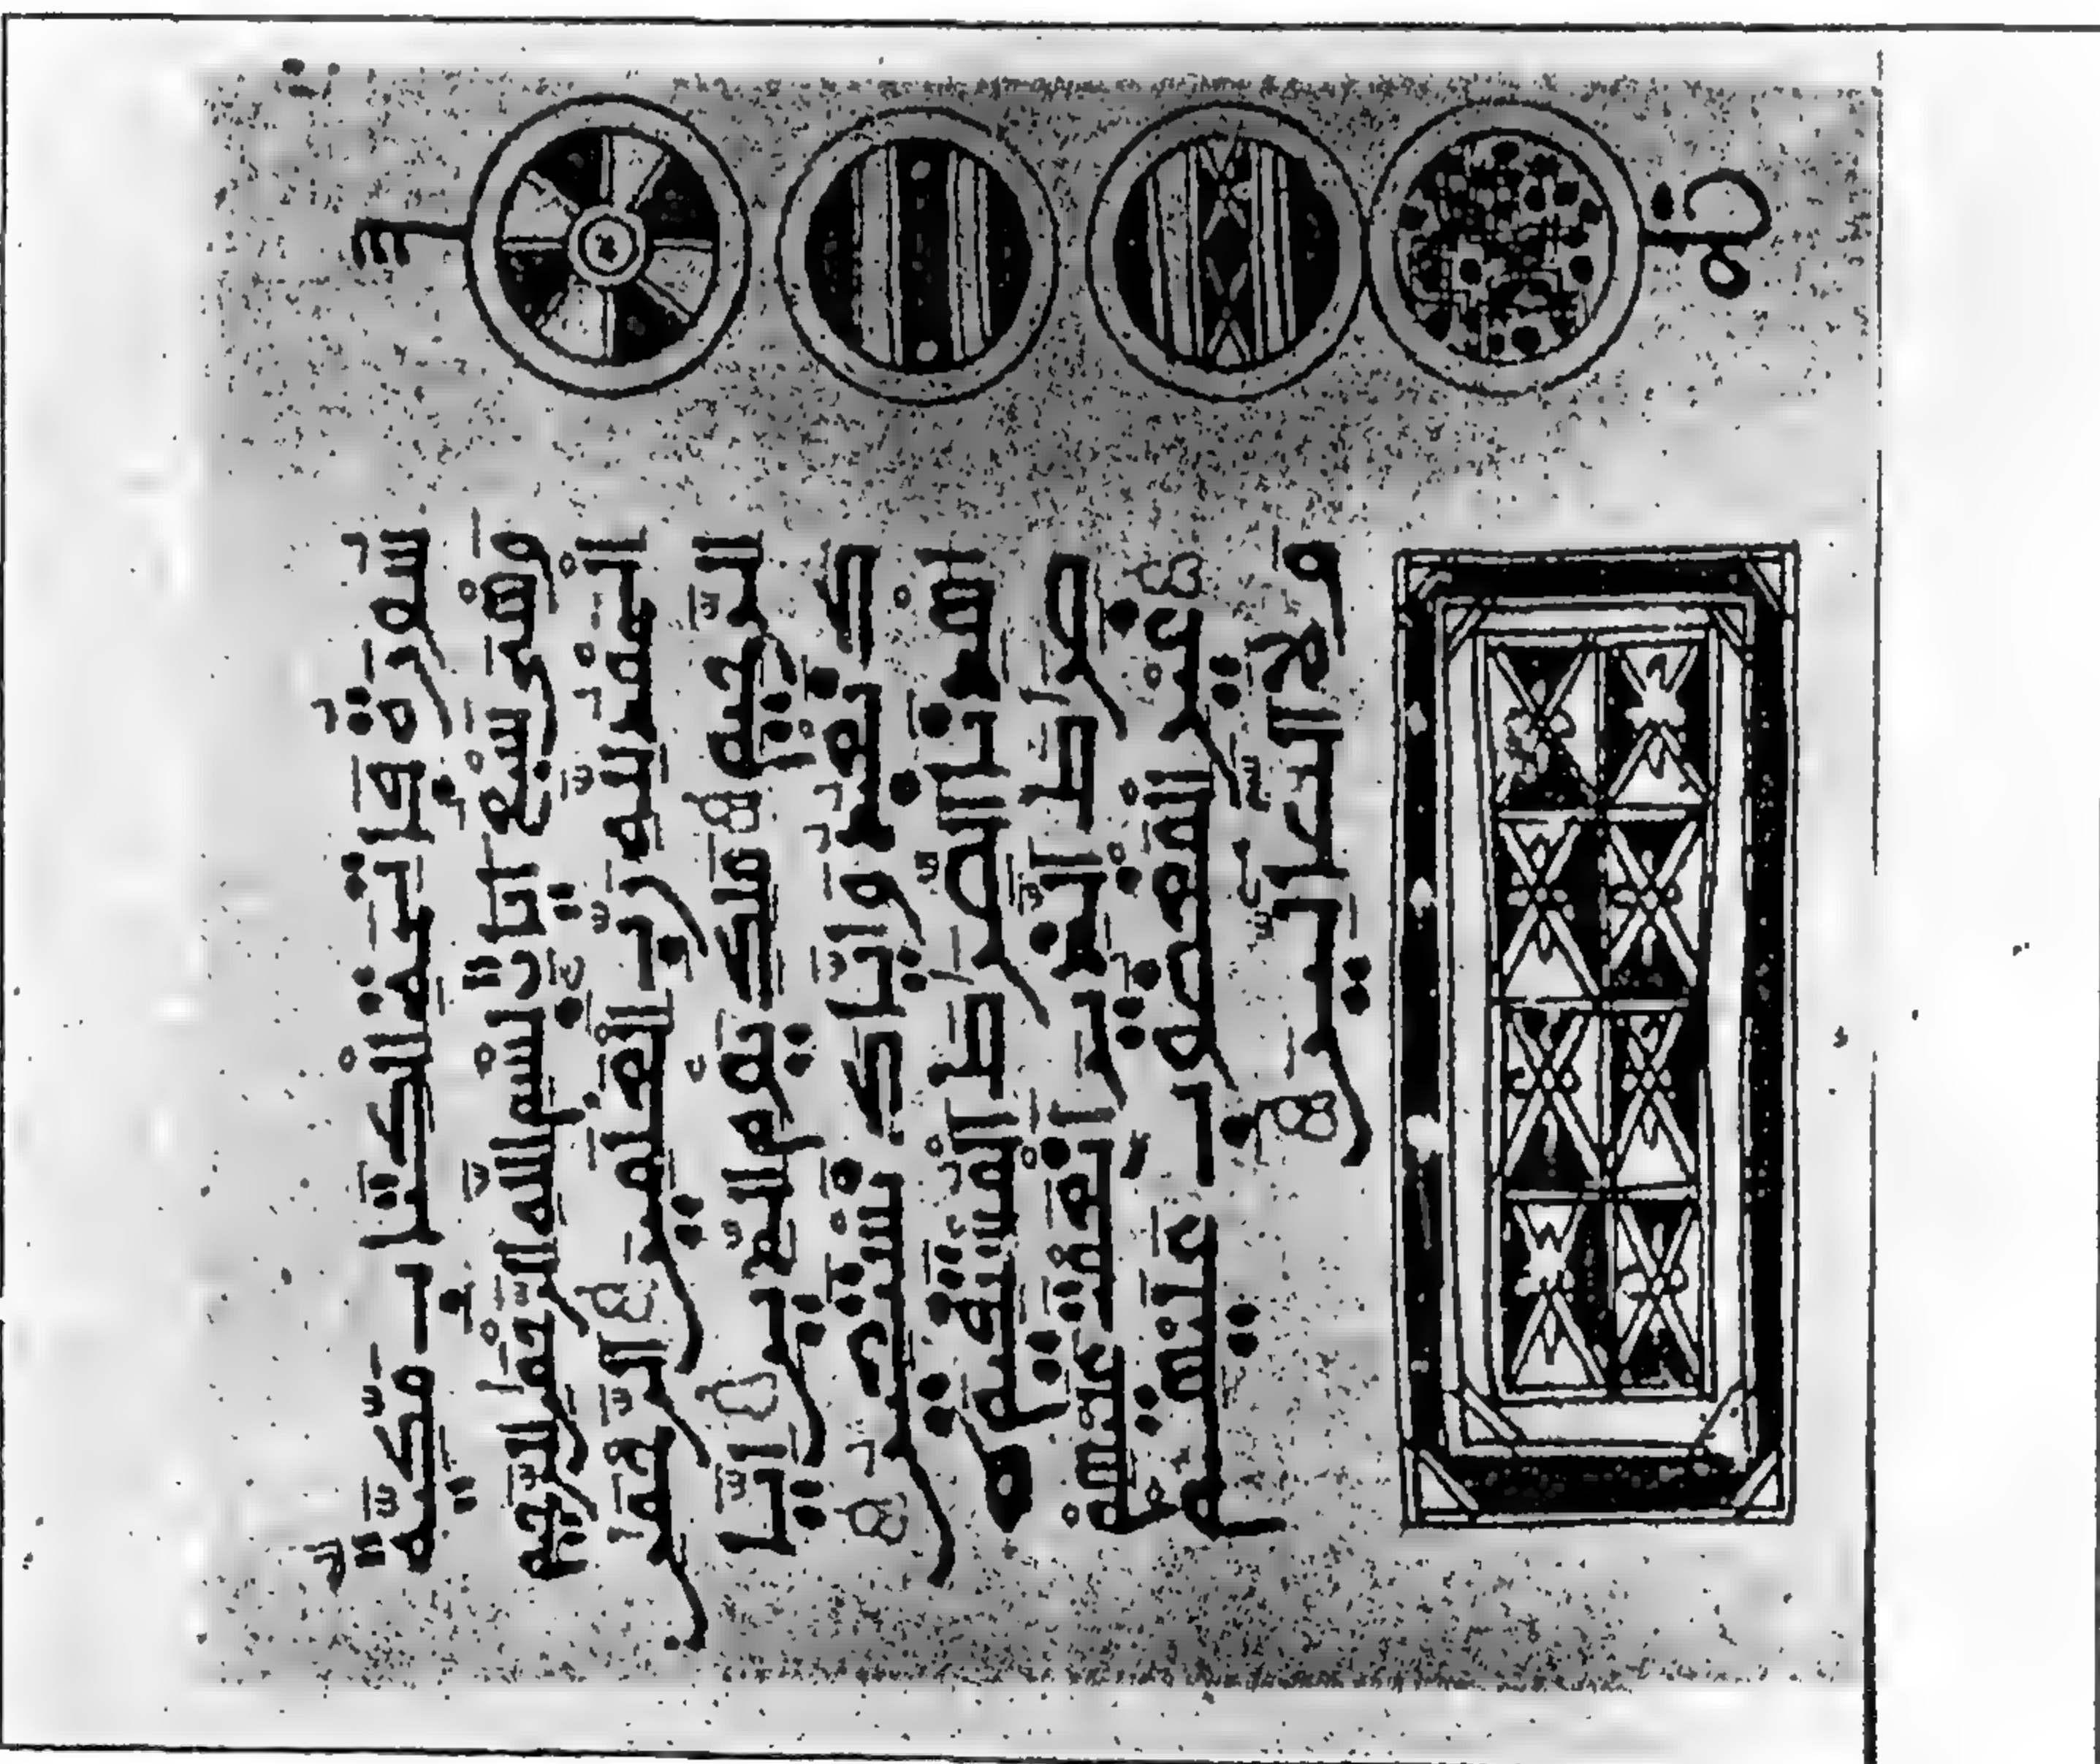 سورة فاتحة الكتاب مكية
وهي سبع ايات بسم الله الرحمن الرحيم
الحمد لله رب العلمين الرحمن
الرحيم ملك يوم الدين ايا
ك نعبد وايا ك نستعين
اهدنا الصرط المستقيم
صرط الذين انعمت عليهم
غير المغضوب عليهم
ولا الضالين